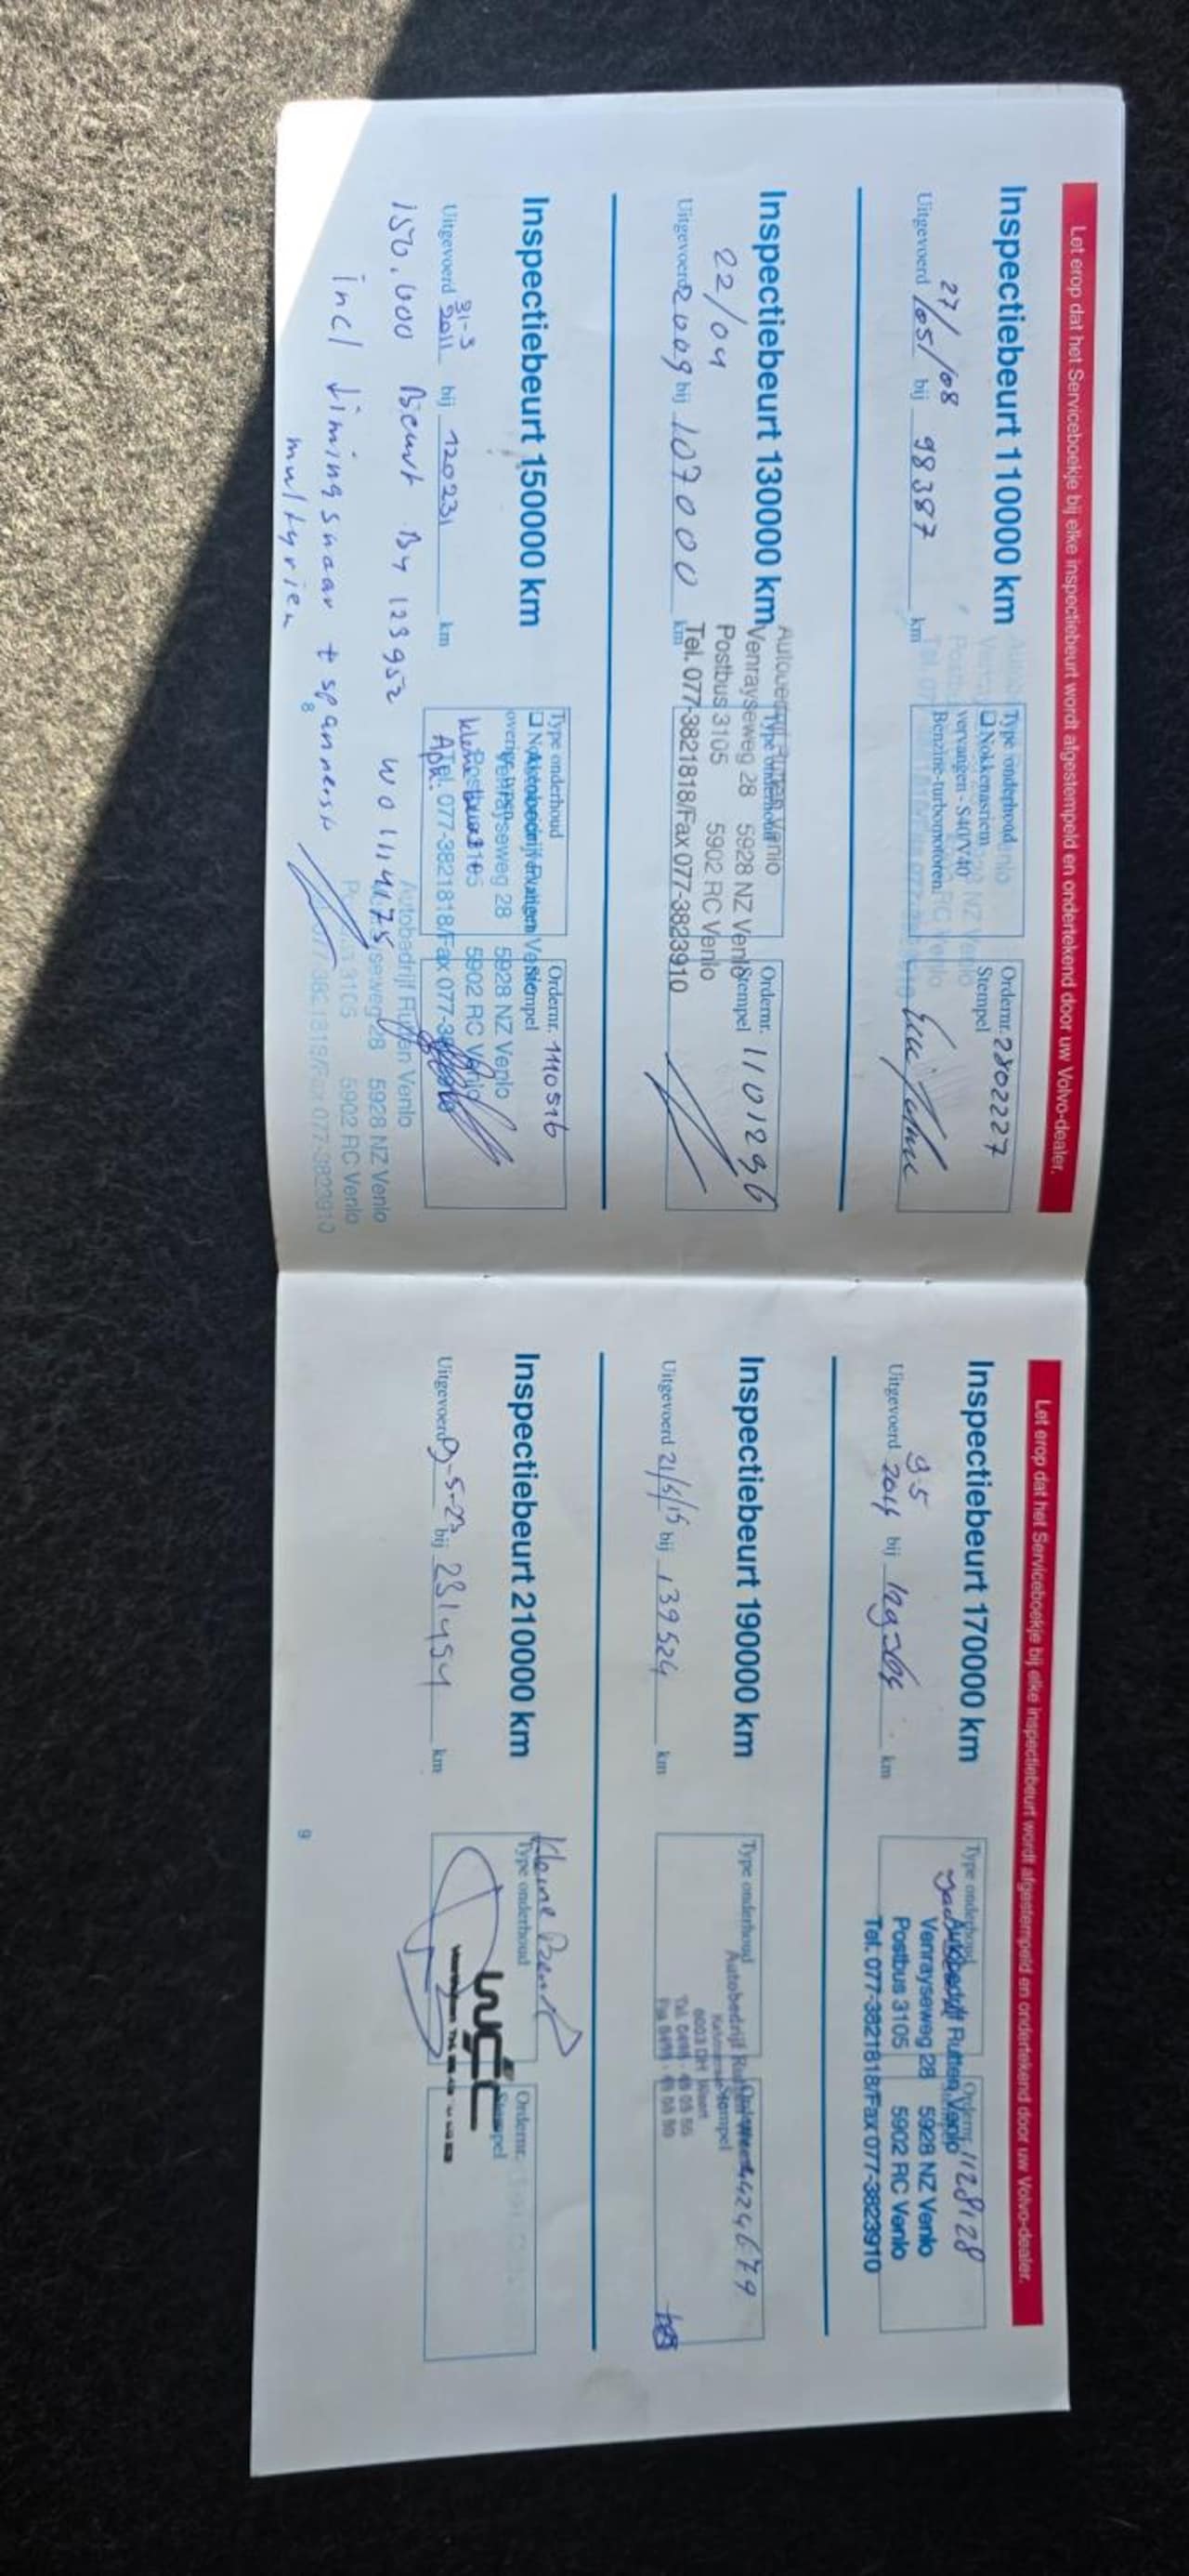 Let erop dat het Serviceboekje bij elke inspectiebeurt wordt afgestempeld en ondertekend door uw Volvo-dealer.
Inspectiebeurt 110000 km
Type onderhoud
Ordernr. 2802227
Nokkenasriem
Stempel
vervangen - S40/V40
Benzine-turbomotoren.
27/
Uitgevoerd /05/08 bij 98387 km
Inspectiebeurt 130000 km
Type onderhoud
Ordernr. 1101296
Stempel
Venlo
Venrayseweg 28 5928 NZ Venlo
Postbus 3105 5902 RC Venlo
Tel. 077-3821818/Fax 077-3823910
22/04
Uitgevoerd 2009 bij 107000 km
Inspectiebeurt 150000 km
Type onderhoud
Ordernr. 1110516
Stempel
Venrayseweg 28 5928 NZ Venlo
5902 RC Venlo
Tel. 077-3821818/Fax 077-
31-3
Uitgevoerd 2011 bij 120231 km
150.000 Beurt By 123952 WO
Autobedrijf Venlo
28 5928 NZ Venlo
3105 5902 RC Venlo
077-3821818/Fax 077-3823910
incl timing snaar + spanners
multyriem
8
Let erop dat het Serviceboekje bij elke inspectiebeurt wordt afgestempeld en ondertekend door uw Volvo-dealer.
Inspectiebeurt 170000 km
Type onderhoud
Ordernr. 1128128
Rutten Venlo
Venrayseweg 28 5928 NZ Venlo
Postbus 3105 5902 RC Venlo
Tel. 077-3821818/Fax 077-3823910
9.5
Uitgevoerd bij km
Inspectiebeurt 190000 km
Type onderhoud
Autobedrijf
Stempel
Uitgevoerd 21/5/15 bij 139524 km
Inspectiebeurt 210000 km
Kleine Beurt
Type onderhoud
Ordernr.
Stempel
Uitgevoerd 9-5-23 bij 231454 km
9